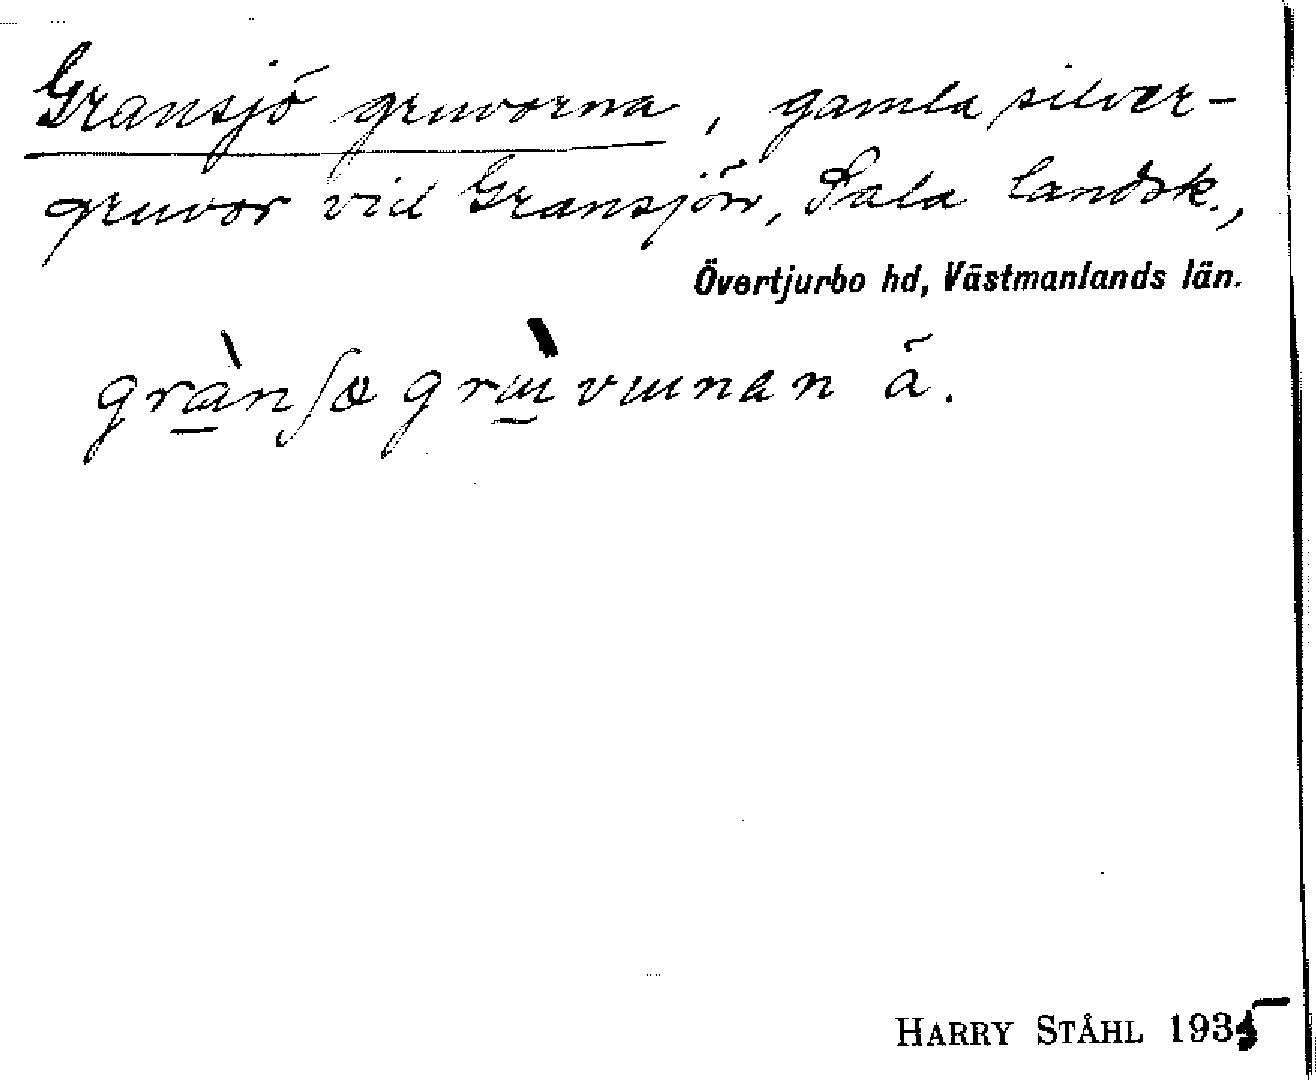 Gransjö gruvorna, gamla silver-
gruvor vid Gransjön, Sala landsk.,
Övertjurbo hd, Västmanlands län.
grànʃɷ grɯ̀vɯnan ä.
HARRY STÅHL 1935